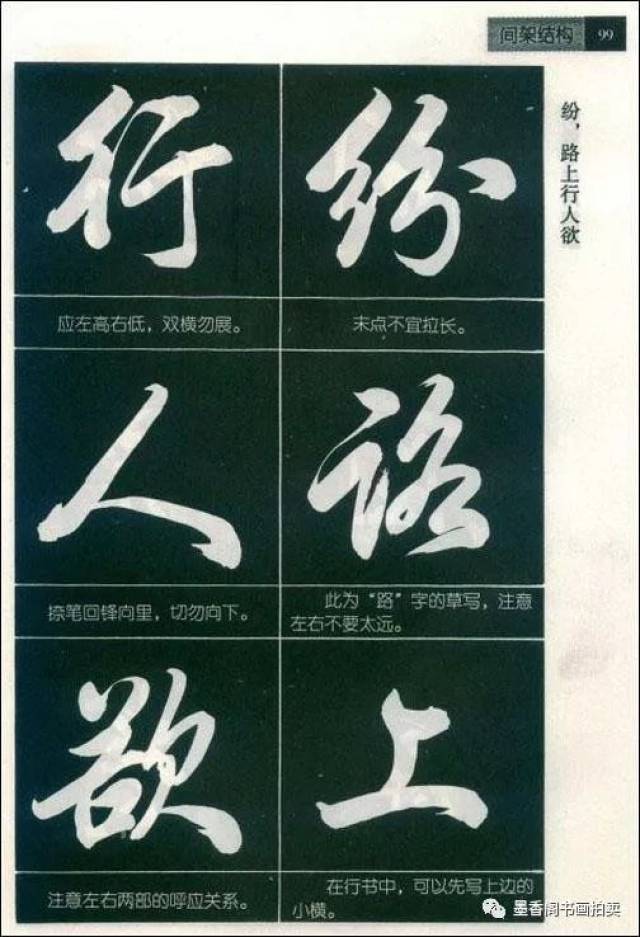 间架结构 99
纷，路上行人欲
纷
末点不宜拉长。
路
此为“路”字的草写，注意
左右不要太远。
上
在行书中，可以先写上边的
小横。
行
应左高右低，双横勿展。
人
捺笔回锋向里，切勿向下。
欲
注意左右两部的呼应关系。
墨香阁书画拍卖